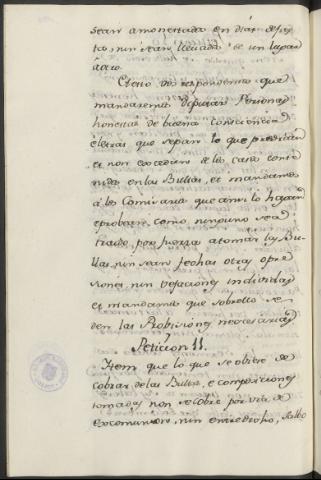 sean amonestada en dias de fies
tas, nin sean llevada de un lugar
à otro.
Ctavo vos respondemos que
mandaremos diputar Personas
honestas de buena consciencia
è letras que sepan lo que predican
et non excedieren de los casos conte
nidos en las Bullas, et mandamos
à los Comisarios que ansi lo hagan
è provean como ninguno sea
traido por fuerza a tomar las Bu
llas, nin sean fechas otras opre
siones, nin vejaciones individas
et mandamos que sobrello se
den las Provisiones necesarias
Peticion 11.
Item que lo que se obiere de
cobrar de las Bullas, e composiciones
tomadas non se cobre por via de
excomunion, nin entredicho, salvo